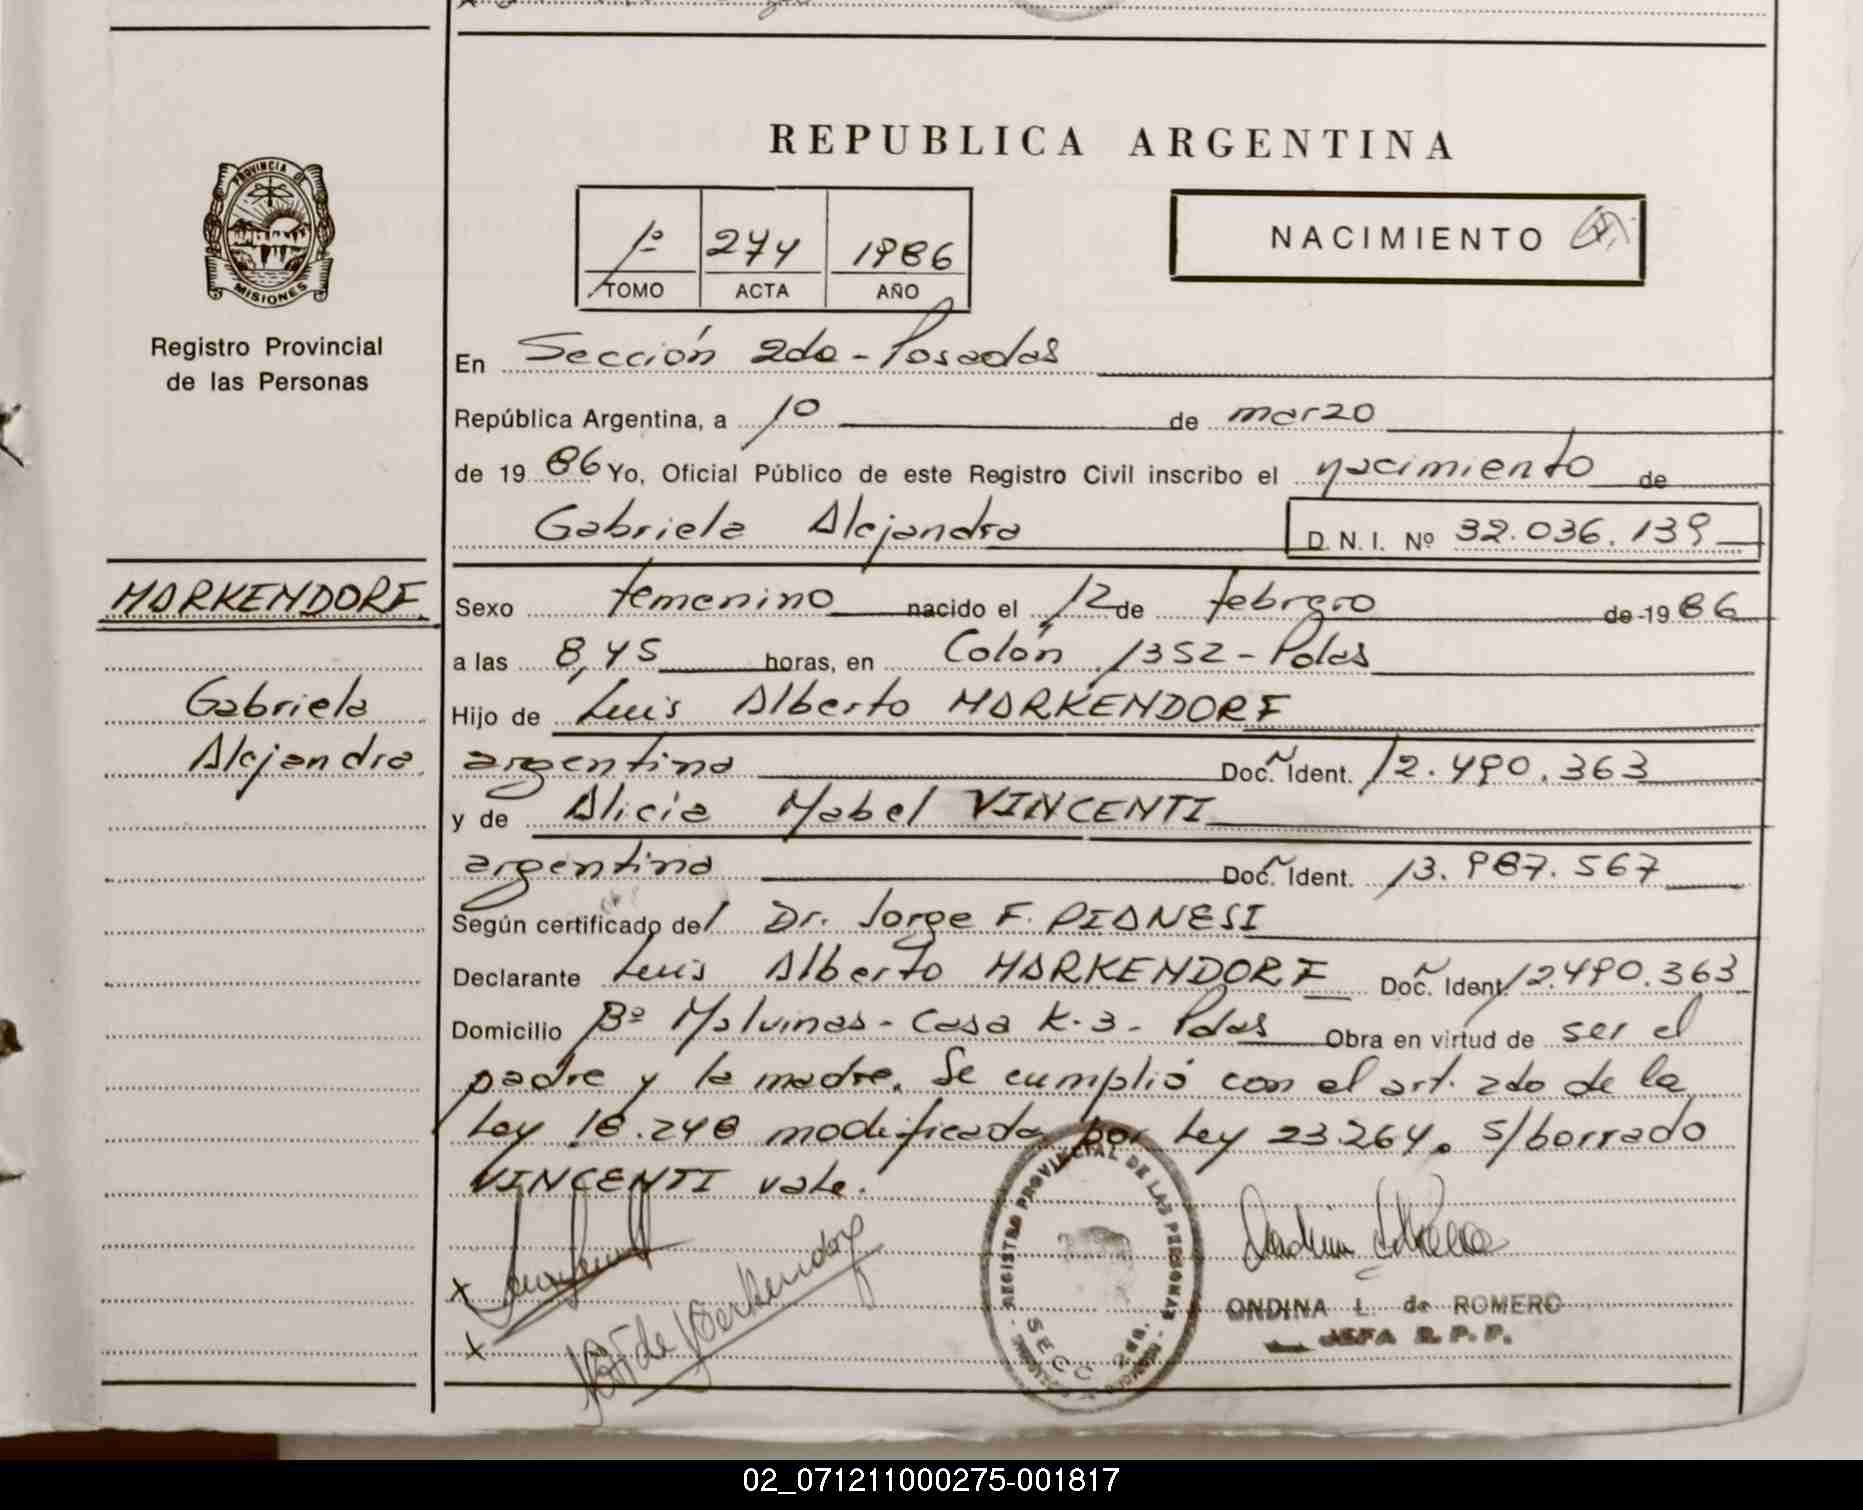 REPUBLICA ARGENTINA
PROVINCIA DE
MISIONES
Registro Provincial
de las Personas
1º 274 1986
TOMO ACTA AÑO
NACIMIENTO
En Sección 2da - Posadas
República Argentina, a 10 de marzo
de 1986 Yo, Oficial Público de este Registro Civil inscribo el nacimiento de
Gabriela Alejandra D.N.I. Nº 32.036.139
MARKENDORF
Gabriela
Alejandra
Sexo femenino nacido el 12 de febrero de 1986
a las 8,45 horas, en Colón 1352 - Pdas
Hijo de Luis Alberto MARKENDORF
argentina Doc. Ident. 12.490.363
y de Alicia Mabel VINCENTI
argentina Doc. Ident. 13.987.567
Según certificado del Dr. Jorge F. PIANESI
Declarante Luis Alberto MARKENDORF Doc. Ident. 12.490.363
Domicilio Bº Malvinas - Casa K-3 - Pdas Obra en virtud de ser el
padre y la madre. Se cumplió con el art. 2do de la
Ley 18.248 modificada por Ley 23264. s/borrado
VINCENTI vale.
x
x
REGISTRO PROVINCIAL DE LAS PERSONAS
SECC 2da.
ONDINA L. de ROMERO
JEFA R.P.P.
02_071211000275-001817